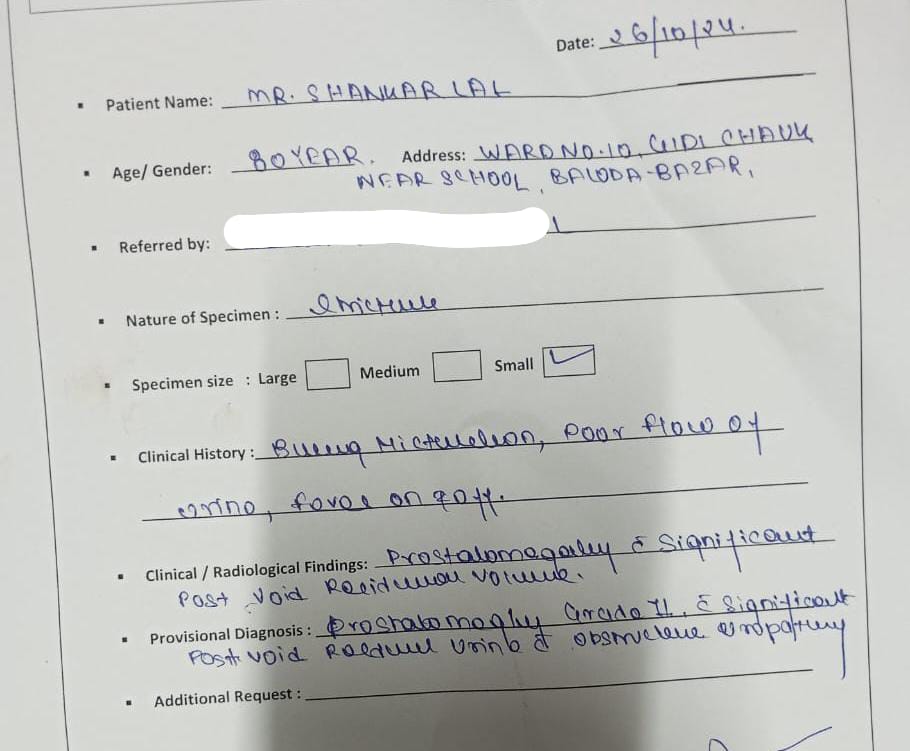 Date: 26/10/24.
Patient Name: MR. SHANKAR LAL
Age/ Gender: 80 YEAR. Address: WARD NO.10, GIDI CHAUK
NEAR SCHOOL, BALODA-BAZAR,
Referred by:
Nature of Specimen :
Specimen size : Large Medium Small
Clinical History : Micturition, Poor flow of
urine, on & off.
Clinical / Radiological Findings: Prostatomegaly c̄ Significant
Post void Residual volume.
Provisional Diagnosis : Prostatomegaly Grade II, c̄ Significant
Post void urine obstructive uropathy
Additional Request :